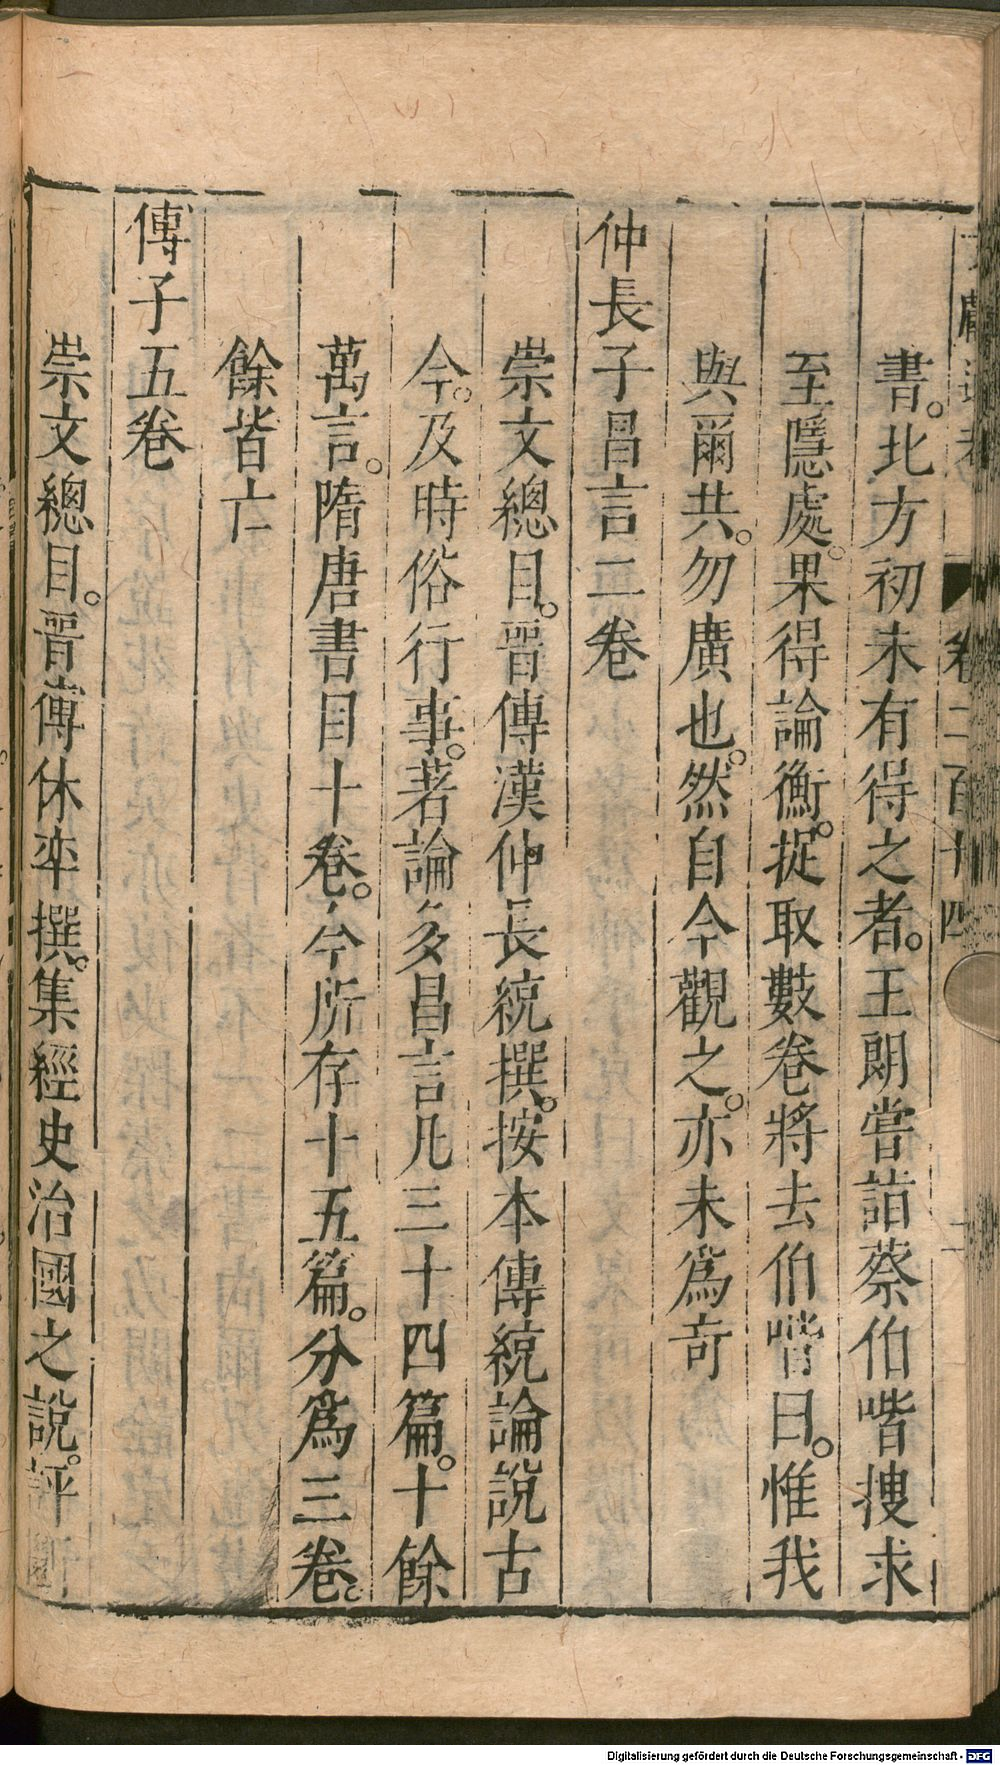 文獻通考 卷二百十四
書。北方初未有得之者。王朗嘗詣蔡伯喈搜求
至隱處。果得論衡。捉取數卷將去伯喈曰。惟我
與爾共。勿廣也。然自今觀之。亦未爲奇
仲長子昌言二卷
崇文總目。晉傳漢仲長統撰。按本傳統論說古
今。及時俗行事。著論名昌言凡三十四篇。十餘
萬言。隋唐書目十卷。今所存十五篇。分爲三卷。
餘皆亡
傳子五卷
崇文總目。晉傳休弈撰。集經史治國之說。評
Digitalisierung gefördert durch die Deutsche Forschungsgemeinschaft - DFG